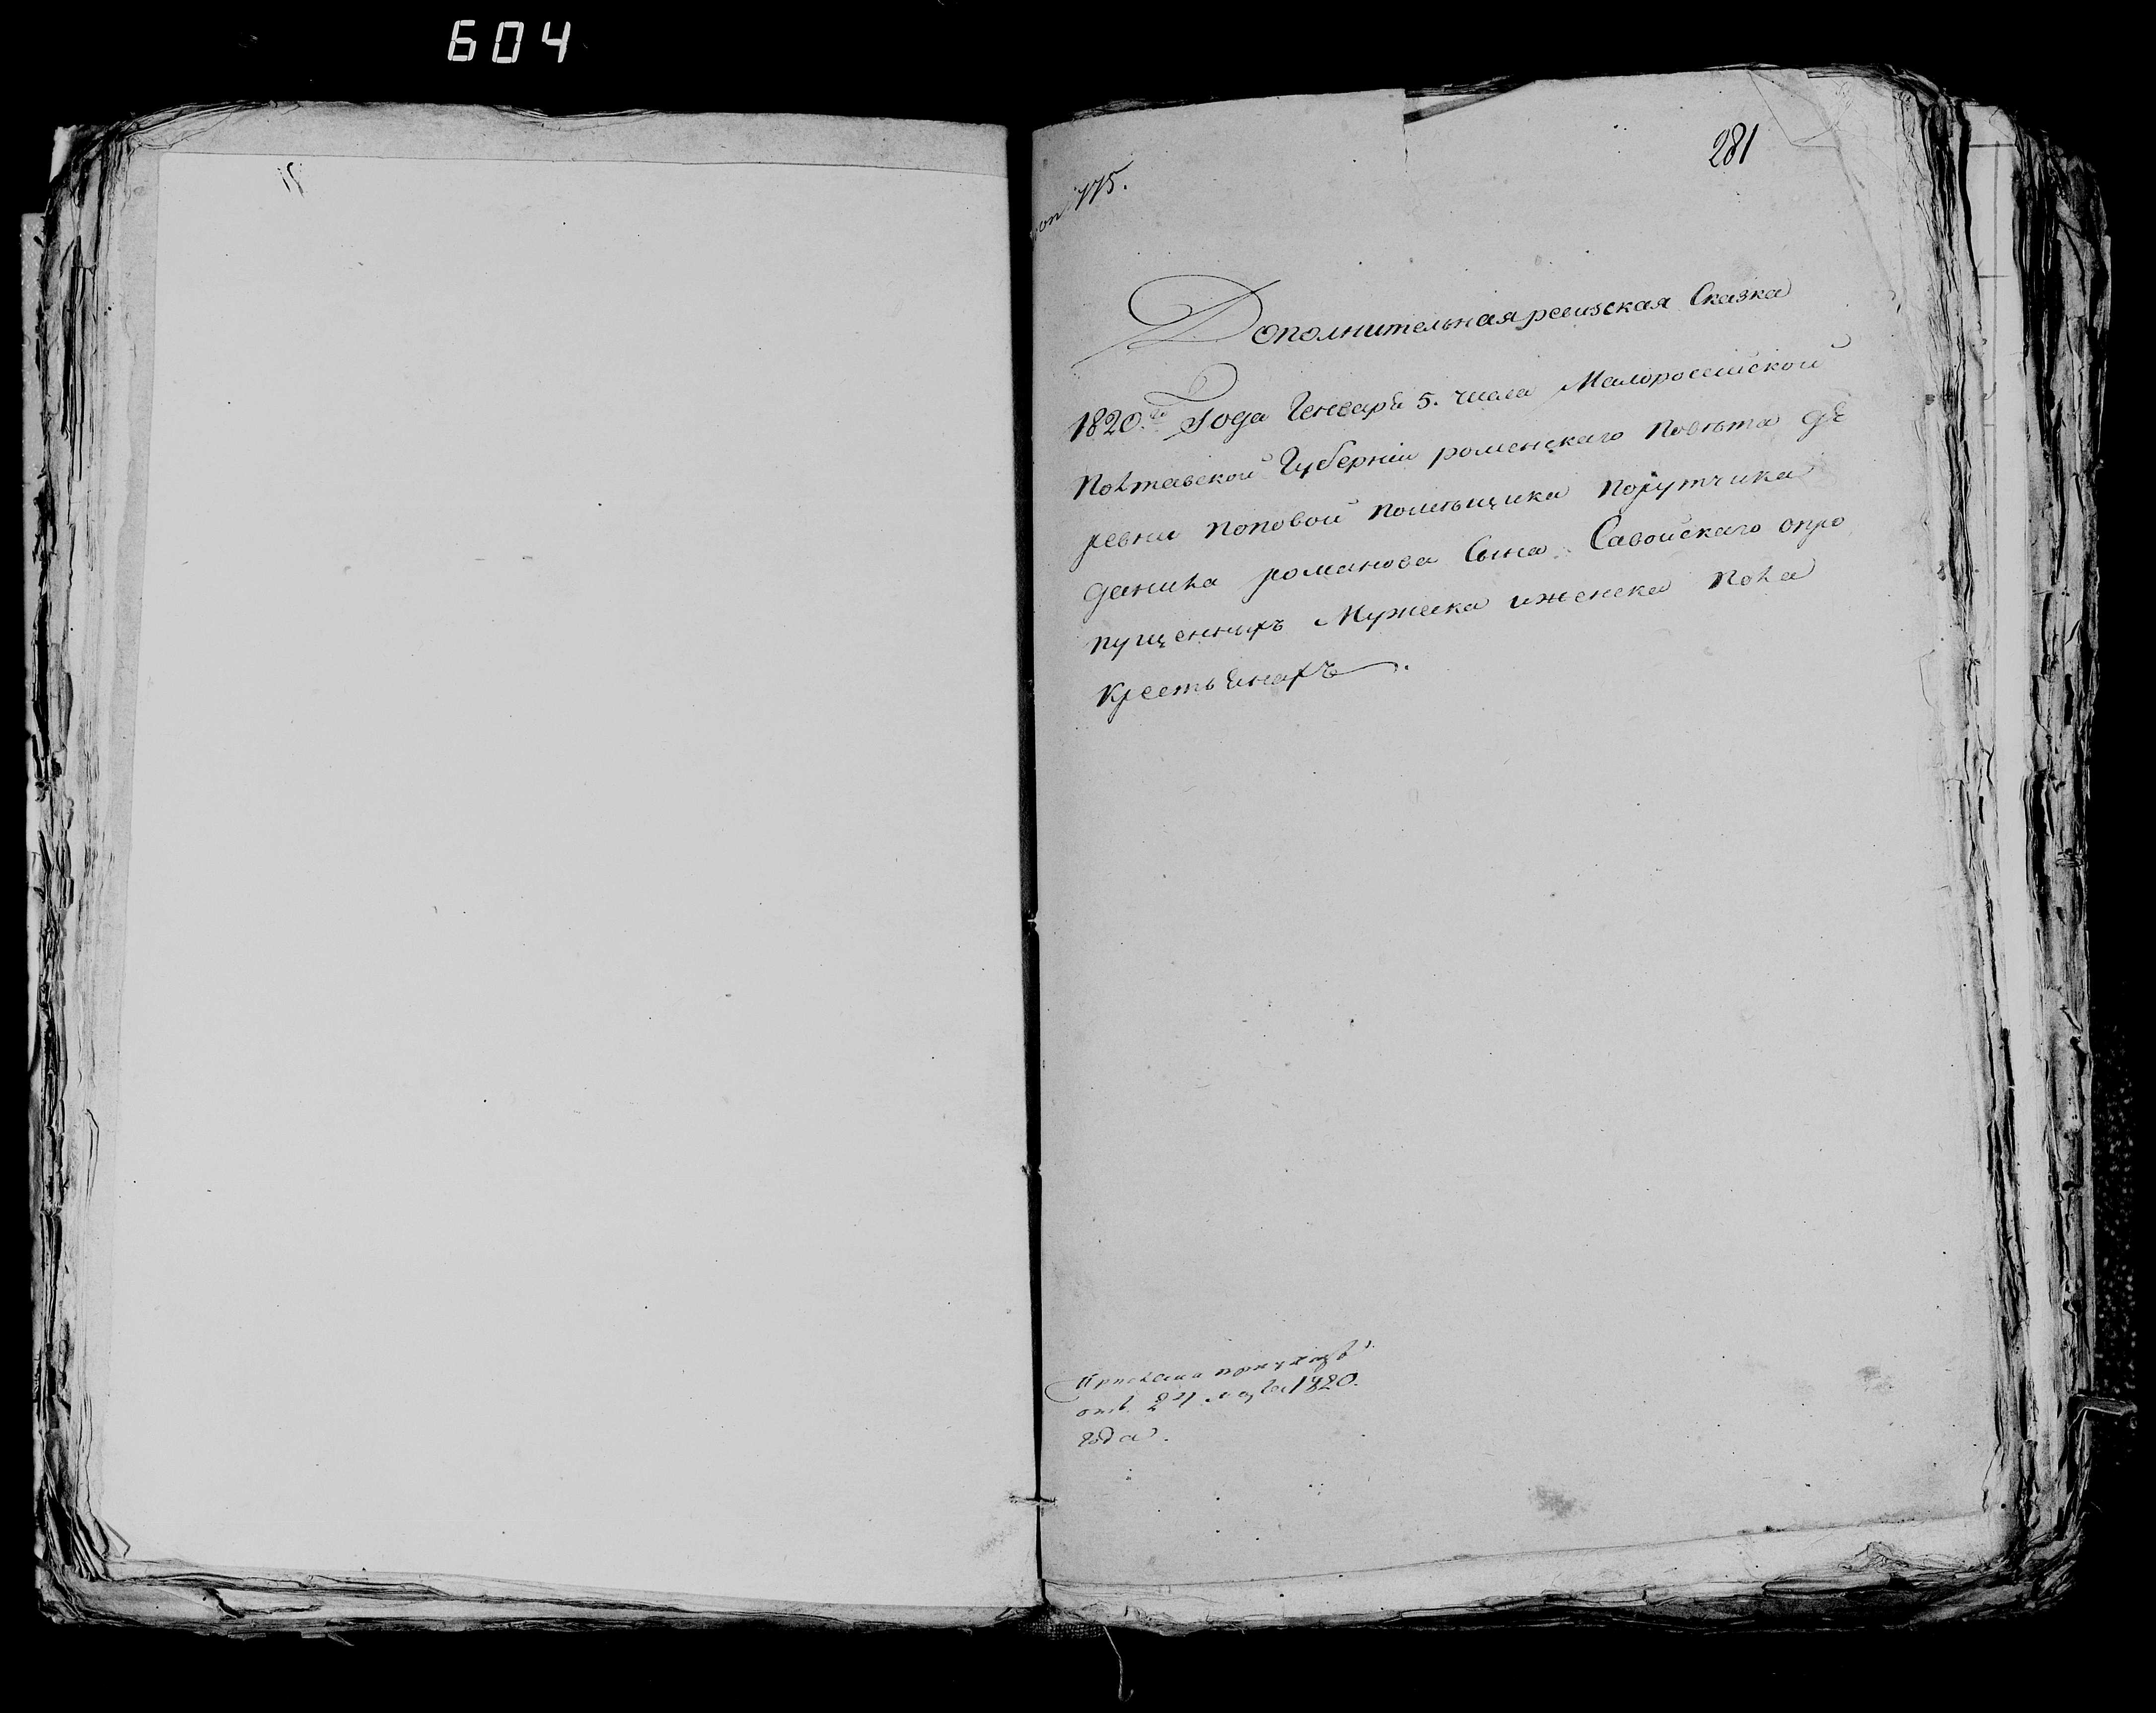 604
281
775.
Дополнительная ревизская Сказка
1820.го Года Генваря 5. числа Малороссійской
Полтавской Губерніи роменскаго повѣта де
ревни поповой помѣщика порутчика
данила романова Сына Савойскаго опро
пущенныхъ Мужеска иженска пола
крестьянахъ.
1820.
года.